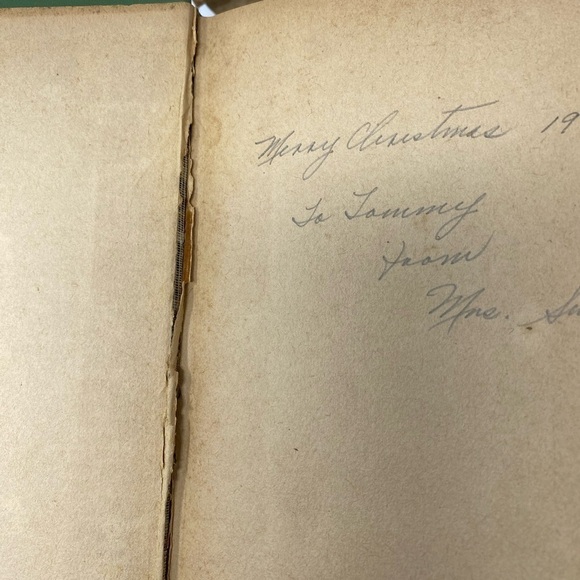 Merry Christmas 19
To Tommy
from
Mrs.